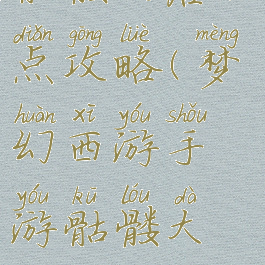 diǎn gōng lüè mèng
点攻略(梦
huàn xī yóu shǒu
幻西游手
yóu kū lóu dà
游骷髅大